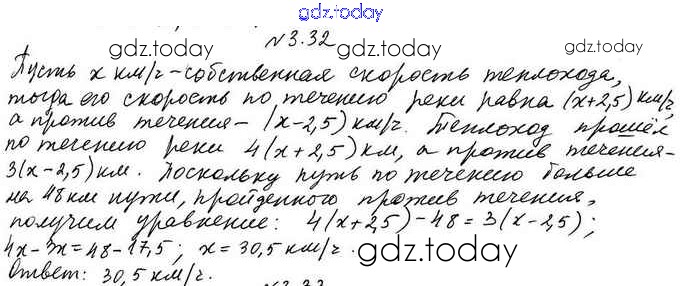 gdz.today
№3.32
gdz.today gdz.today
Пусть x км/ч - собственная скорость теплохода,
тогда его скорость по течению реки равна (x+2,5) км/ч,
а против течения - (x-2,5) км/ч. Теплоход прошёл
по течению реки 4(x+2,5) км, а против течения -
3(x-2,5) км. Поскольку путь по течению больше
на 48 км пути, пройденного против течения,
получим уравнение: 4(x+2,5)-48=3(x-2,5);
4x-3x=48-17,5; x=30,5 км/ч.
gdz.today
Ответ: 30,5 км/ч.
gdz.today
№3.33